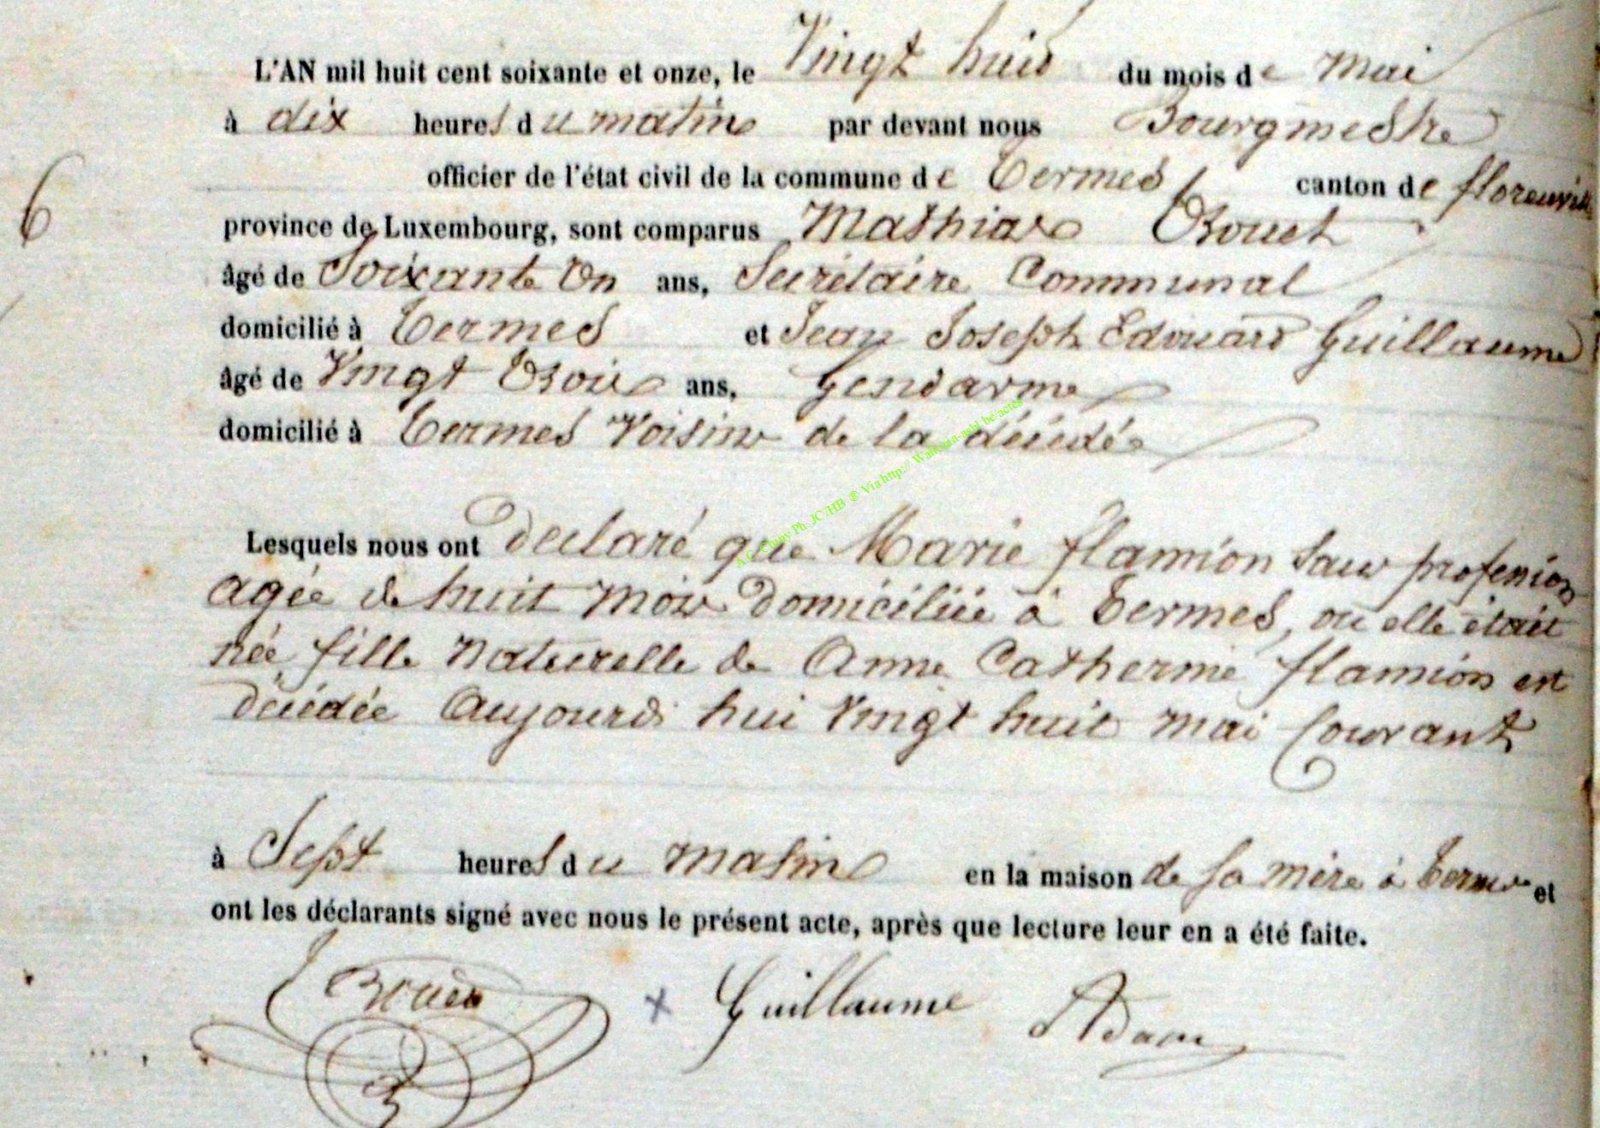 L'AN mil huit cent soixante et onze, le Vingt huit du mois de mai
à dix heures du matin par devant nous Bourgmestre
officier de l'état civil de la commune de Termes canton de florenville
6
province de Luxembourg, sont comparus Mathias Trouet
âgé de Soixante Un ans, Secrétaire Communal
domicilié à Termes et Jean Joseph Edouard Guillaume
âgé de Vingt Trois ans, Gendarme
domicilié à Termes Voisins de la décédée
Lesquels nous ont declaré que Marie flamion Sans profession
agée de huit mois domiciliée à Termes, ou elle était
née fille Naturelle de Anne Catherine flamion est
décédée Aujourd hui Vingt huit mai Courant
à Sept heures du matin en la maison de sa mère à Termes et
ont les déclarants signé avec nous le présent acte, après que lecture leur en a été faite.
Trouet x Guillaume Adam